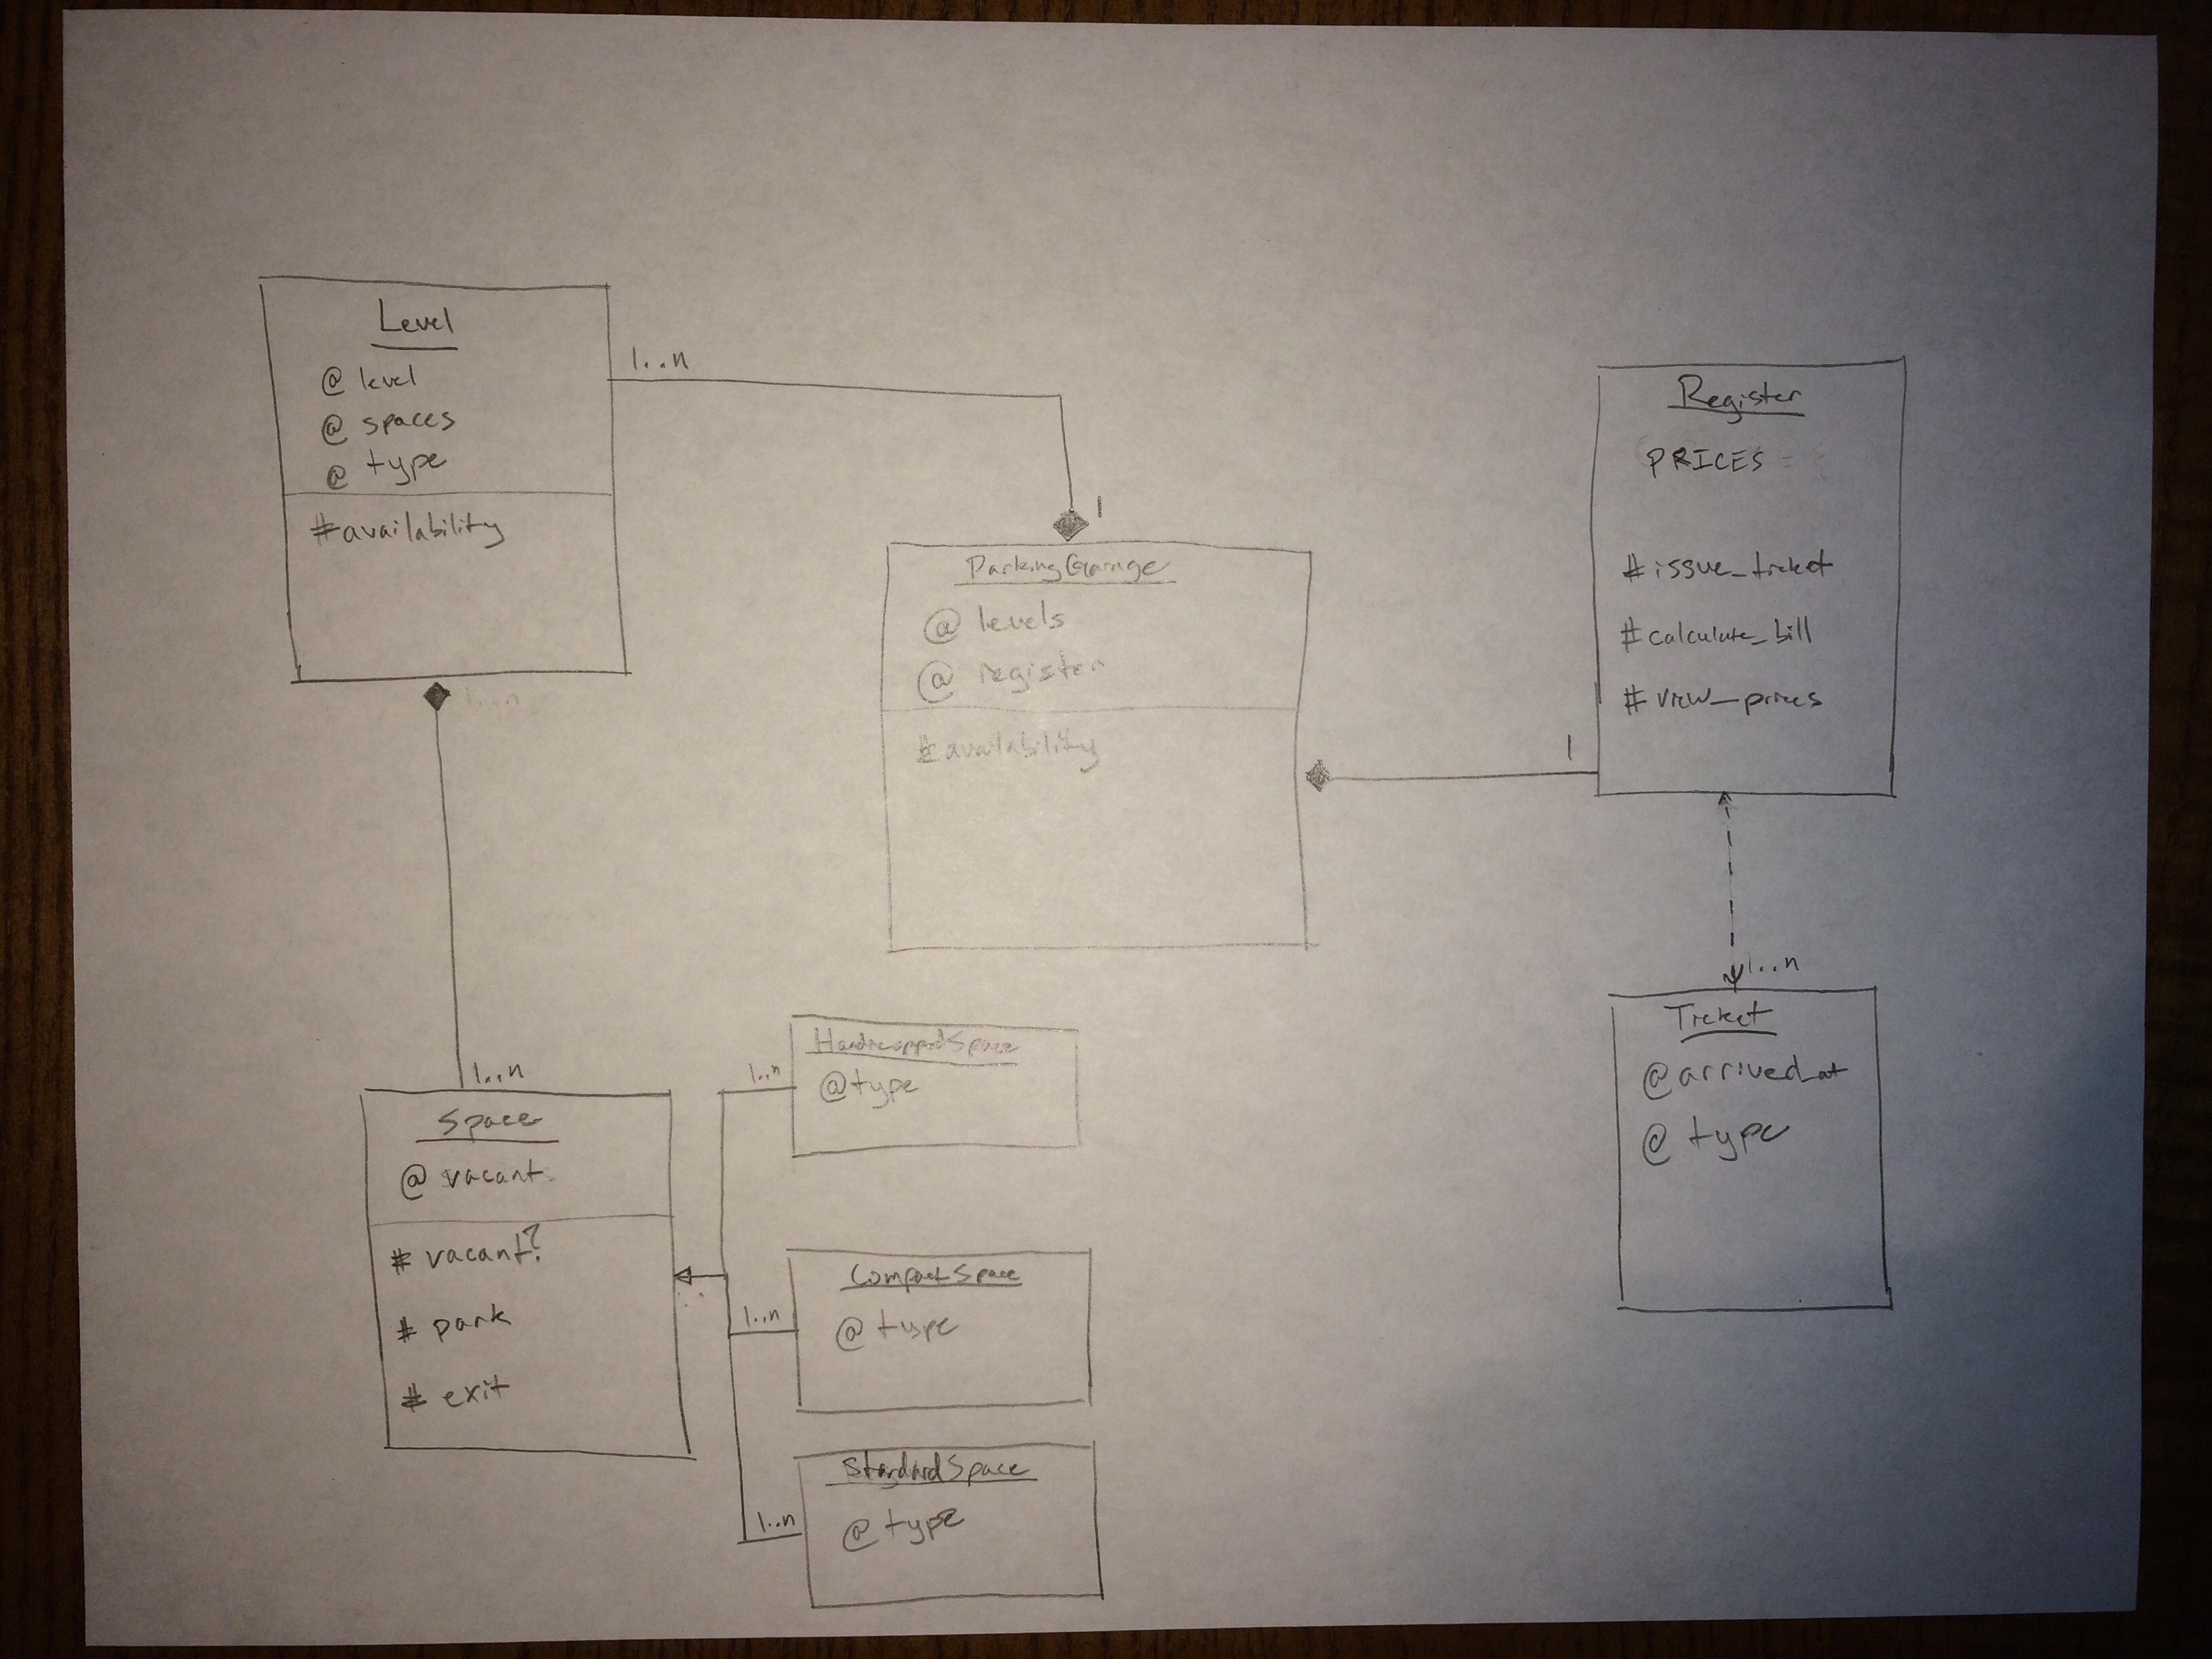 Level
@ level
@ spaces
@ type
#availability
1..n
1
ParkingGarage
@ levels
@ register
#availability
1
Register
PRICES
#issue_ticket
#calculate_bill
#view_prices
1..n
Ticket
@arrived_at
@ type
1..n
1..n
Space
@ vacant
# vacant?
# park
# exit
1..n
HandicappedSpace
@type
1..n
CompactSpace
@ type
1..n
StandardSpace
@ type